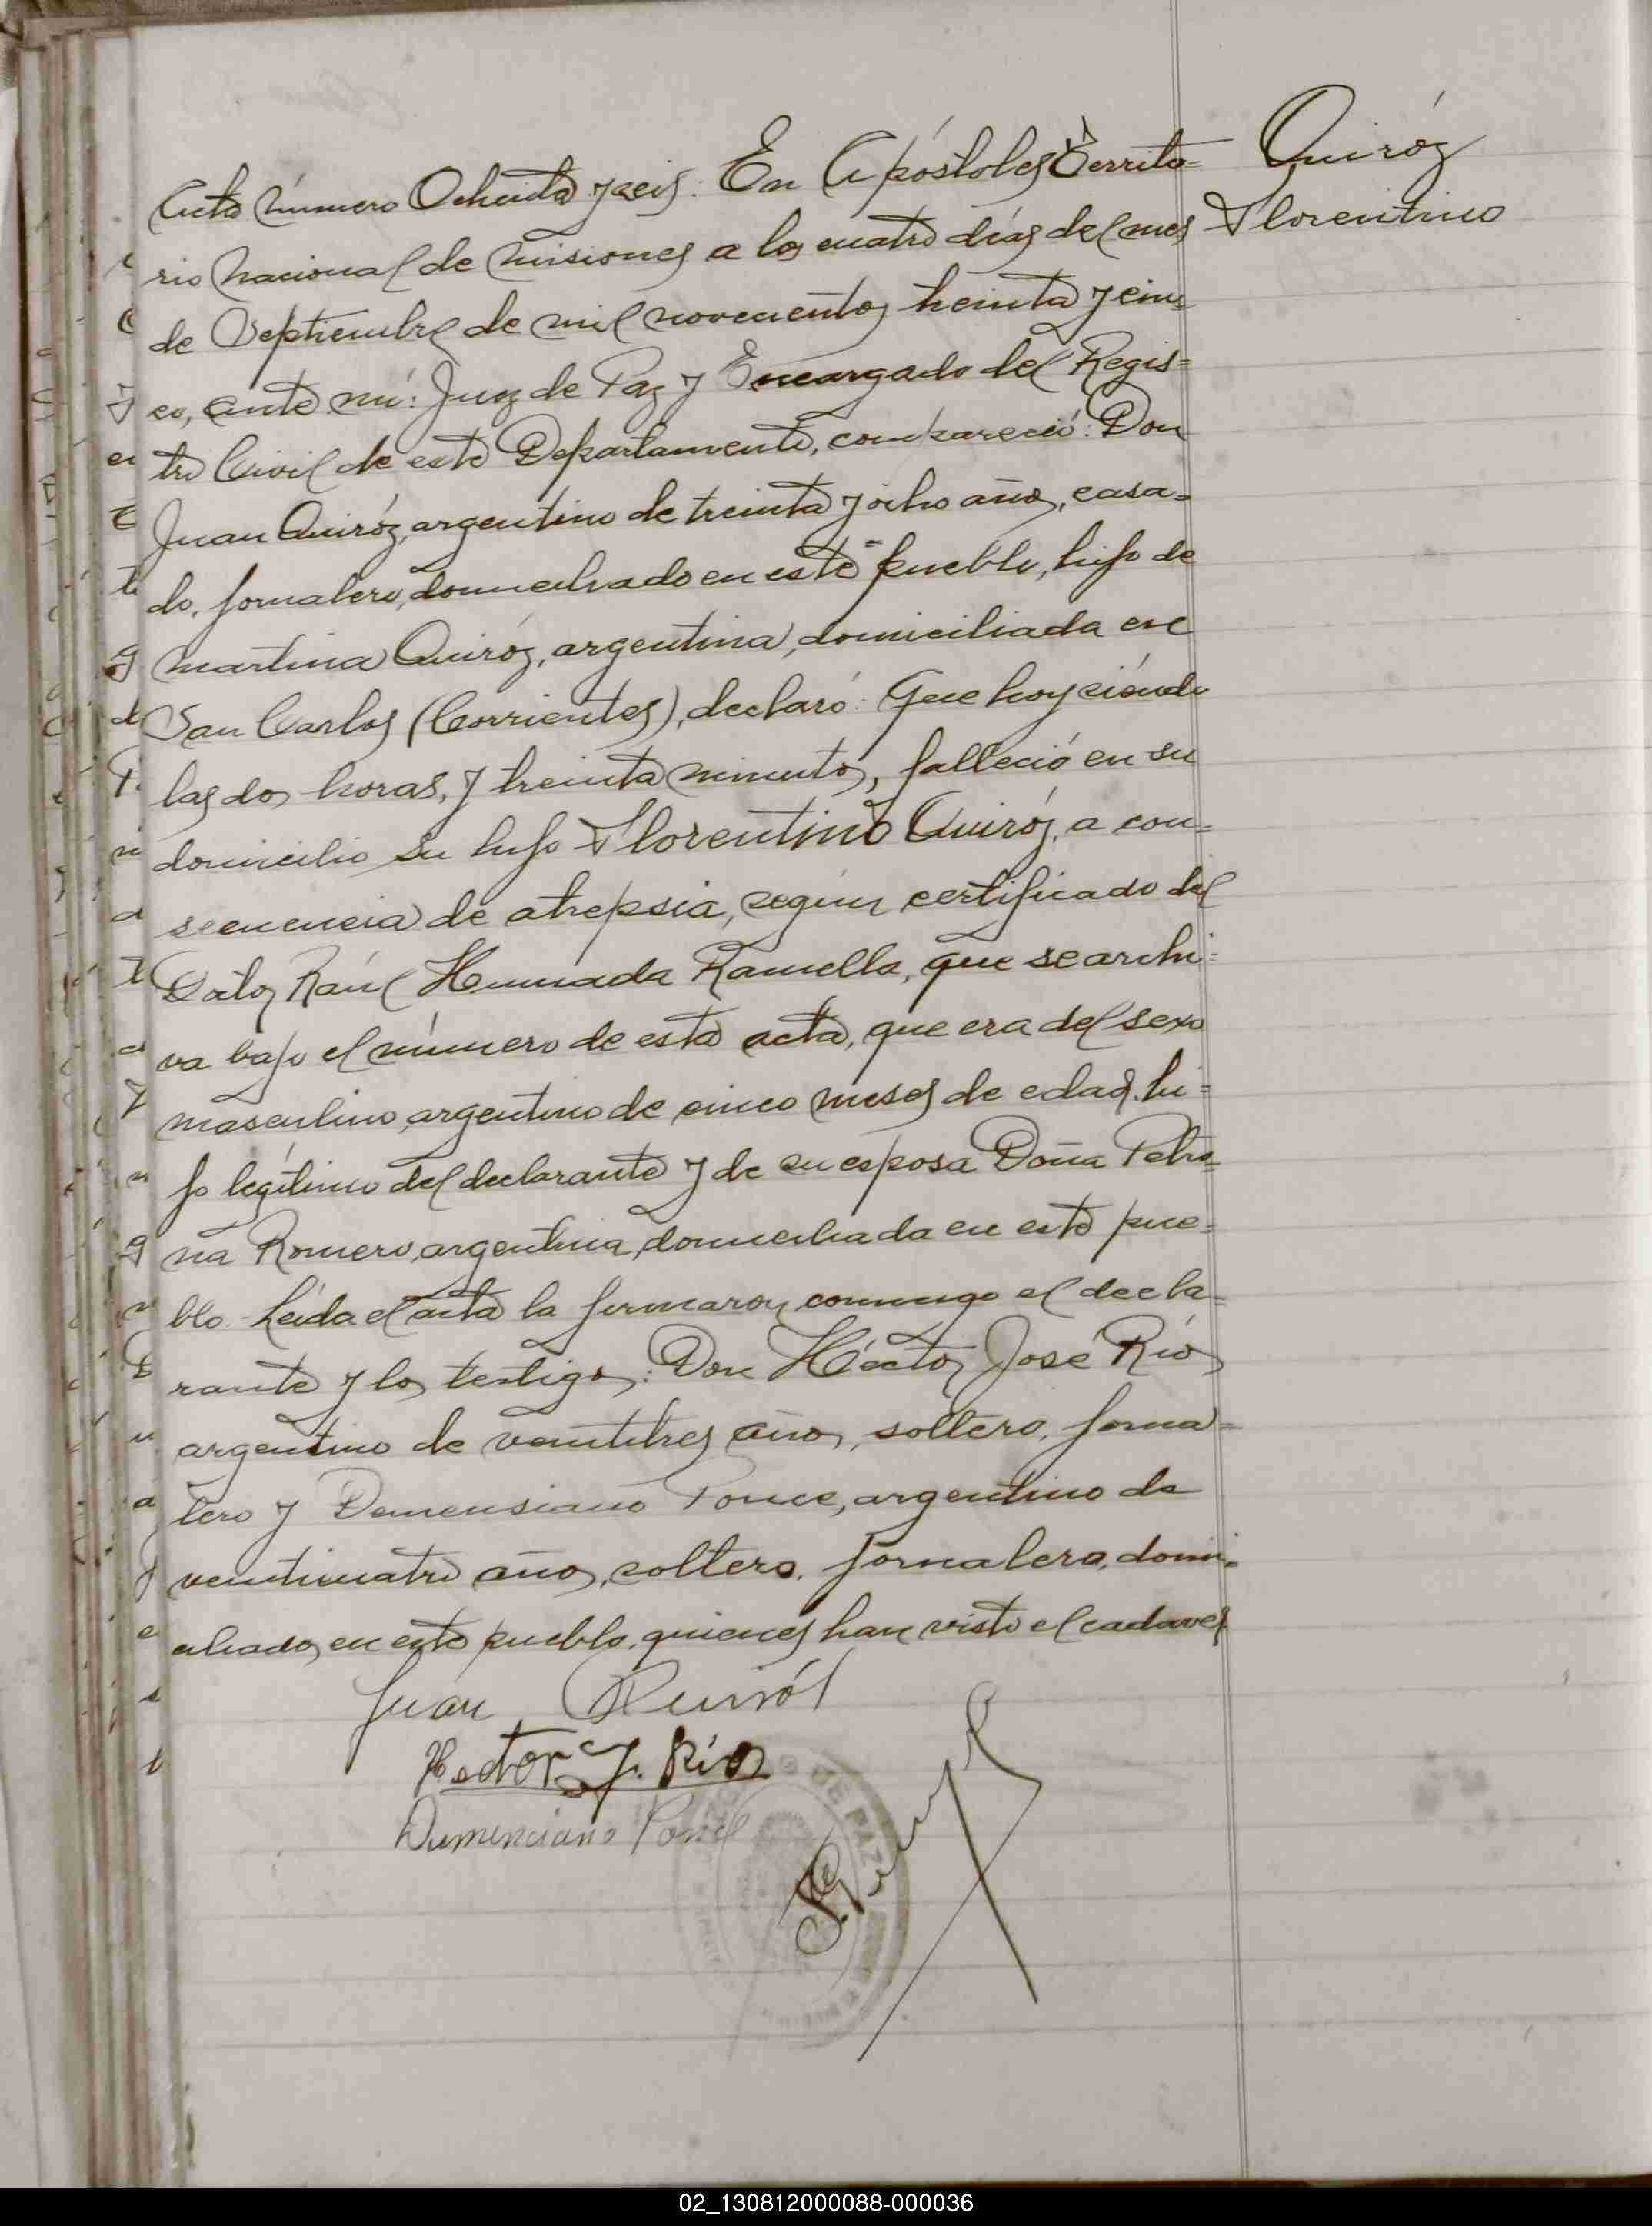 Acta número Ochenta y seis: En Apóstoles Territo=
rio Nacional de Misiones a los cuatro días del mes
de Septiembre de mil novecientos treinta y cin=
co, ante mi: Juez de Paz y Encargado del Regis=
tro Civil de este Departamento, compareció: Don
Juan Quiróz, argentino de treinta y ocho años, casa=
do, jornalero, domiciliado en este pueblo, hijo de
Martina Quiróz, argentina, domiciliada en
San Carlos (Corrientes), declaró: Que hoy siendo
las dos horas, y treinta minutos, falleció en su
domicilio su hijo Florentino Quiróz, a con=
secuencia de atrepsia, según certificado del
Raúl Ramella, que se archi=
va bajo el número de esta acta, que era del sexo
masculino, argentino de cinco meses de edad, hi=
jo legítimo del declarante y de su esposa Doña Petro=
na Romero, argentina, domiciliada en este pue=
blo. Leída el acta la firmaron conmigo el decla=
rante y los testigos: Don Héctor José Ríos
argentino de veintitres años, soltero, jorna=
lero y Demensiano Ponce, argentino de
veinticuatro años, soltero, jornalero, domi=
ciliados en este pueblo, quienes han visto el cadaver
Juan Quiróz
Hector J. Ríos
Dumenciano Ponce
Quiróz
Florentino
DE PAZ
02_130812000088-000036